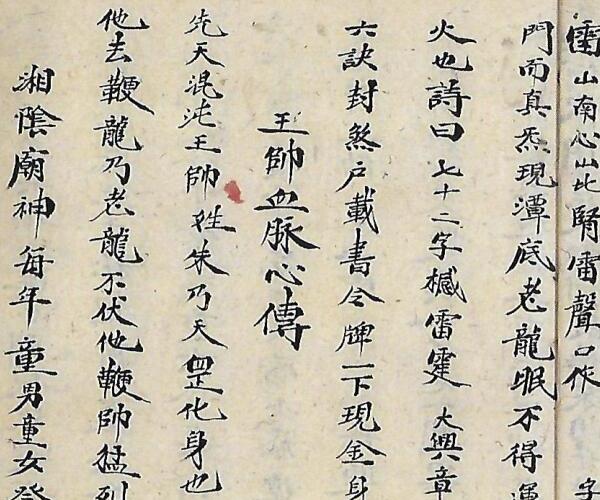 雷山南心山北腎雷聲口作字
門而真炁現潭底老龍眠不得運
火也詩曰七十二字撼雷霆大興章
六訣封煞户載書令牌一下現金身
王帥血脉心傳
先天混沌王帥姓朱乃天罡化身也
他去鞭龍乃老龍不伏他鞭帥猛烈
湘陰廟神每年童男童女祭